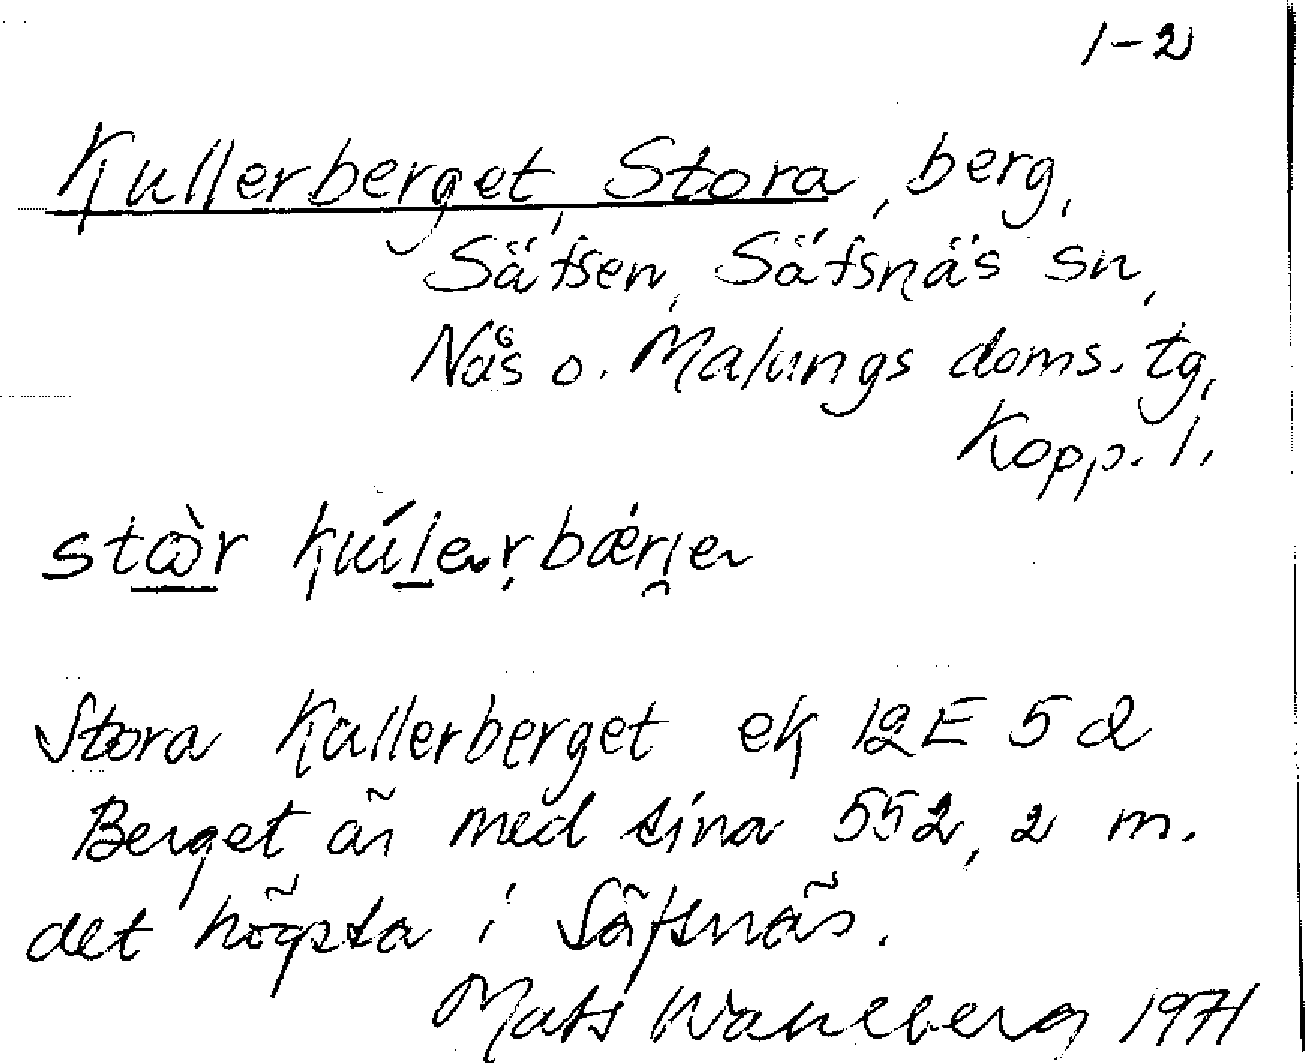 1-2
Kullerberget, Stora, berg,
Säfsen, Säfsnäs sn,
Nås o. Malungs doms. tg,
Kopp. l.
Stora Kullerberget ek 12E 5d
Berget är med sina 552,2 m.
det högsta i Säfsnäs.
Mats Wahlberg 1971